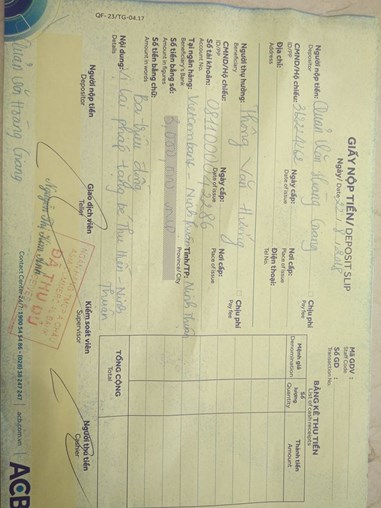 QF - 23/TG-04.17
GIẤY NỘP TIỀN/ DEPOSIT SLIP
Ngày/ Date
Mã GDV :
Staff Code
Số GD :
Transaction No.
Người nộp tiền: Quản Văn Hoàng Giang
Depositor
CMND/Hộ chiếu:
ID/PP
Ngày cấp:
Date of issue
Nơi cấp:
Place of issue
Địa chỉ:
Address
Điện thoại:
Tel No.
Chịu phí
Pay fee
Người thụ hưởng: Thông Văn Hướng
Beneficiary
Chịu phí
Pay fee
CMND/Hộ chiếu:
ID/PP
Ngày cấp:
Date of issue
Nơi cấp:
Place of issue
Số tài khoản:
Account No.
Tại ngân hàng: Vietcombank Ninh Thuận
Beneficiary's Bank
Tỉnh/TP: Ninh Thuận
Province/City
Số tiền bằng số: 3,000,000 VND
Amount in figures
Số tiền bằng chữ: Ba triệu đồng
Amount in words
Nội dung:
Details
Ninh Thuận
BẢNG KÊ THU TIỀN
List of cash receipts
Mệnh giá
Denomination
Số lượng
Quantity
Thành tiền
Amount
TỔNG CỘNG
Total
Người nộp tiền
Depositor
Giao dịch viên
Teller
Kiểm soát viên
Supervisor
Người thu tiền
Cashier
ĐÃ THU ĐỦ
Quản Văn Hoàng Giang
Contact Center 24/7: 1900 54 54 86 - (028) 38 247 247 | acb.com.vn |
ACB